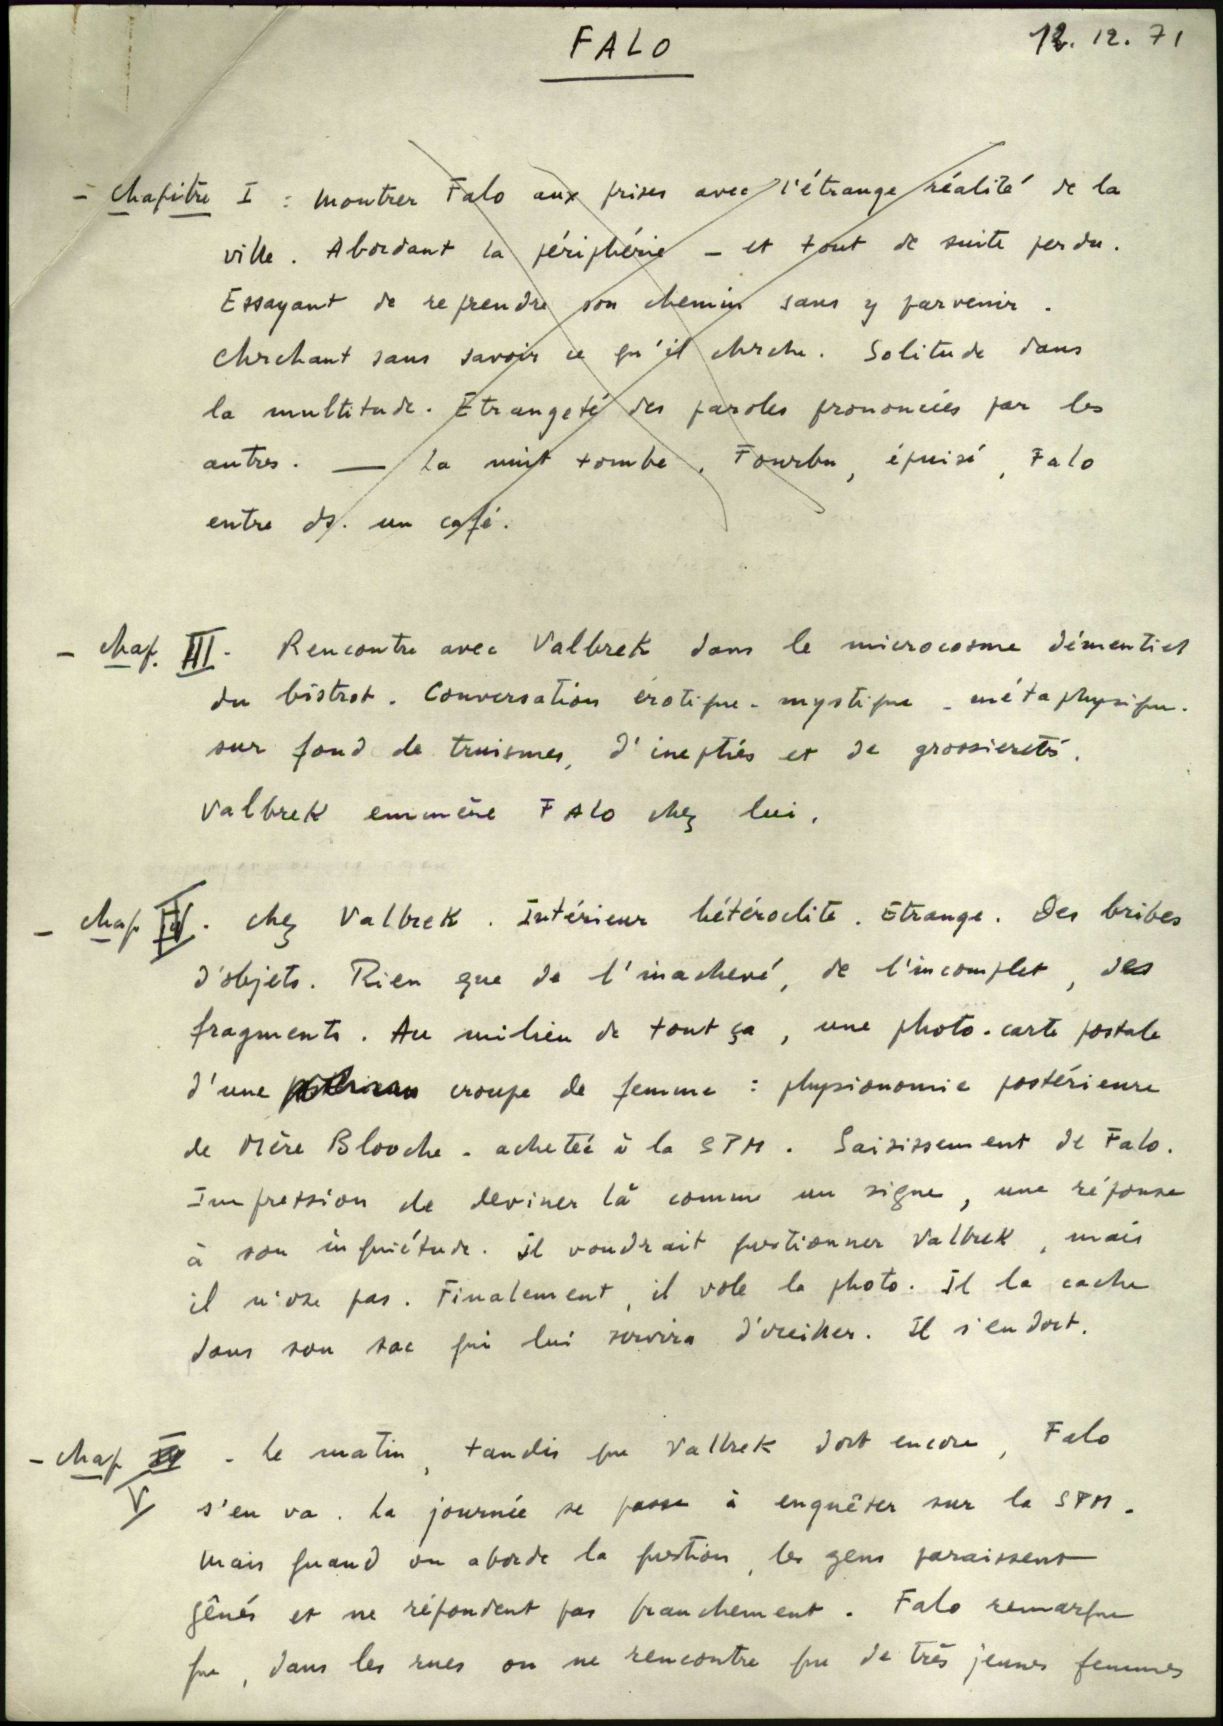 FALO
12.12.71
- Chapitre I : Montrer Falo aux prises avec l'étrange réalité de la
ville. Abordant la périphérie - et tout de suite perdu.
Essayant de reprendre son chemin sans y parvenir.
Cherchant sans savoir ce qu'il cherche. Solitude dans
la multitude. Etrangeté des paroles prononcées par les
autres. — La nuit tombe. Fourbu, épuisé, Falo
entre ds. un café.
- Chap. III. Rencontre avec Valbrek dans le microcosme démentiel
du bistrot. Conversation érotique - mystique - métaphysique.
sur fond de truismes, d'inepties et de grossieretés.
Valbrek emmène FALO chez lui.
- Chap IV. Chez Valbrek. Intérieur hétéroclite. Etrange. Des bribes
d'objets. Rien que de l'inachevé, de l'incomplet, des
fragments. Au milieu de tout ça, une photo-carte postale
d'une croupe de femme : physionomie postérieure
de Mère Blooche - achetée à la SPM. Saisissement de Falo.
Impression de deviner là comme un signe, une réponse
à son inquiétude. Il voudrait questionner Valbrek, mais
il n'ose pas. Finalement, il vole la photo. Il la cache
dans son sac qui lui servira d'oreiller. Il s'endort.
- Chap V - Le matin, tandis que Valbrek dort encore, Falo
s'en va. La journée se passe à enquêter sur la SPM.
Mais quand on aborde la question, les gens paraissent
gênés et ne répondent pas franchement. Falo remarque
que, dans les rues on ne rencontre que de très jeunes femmes